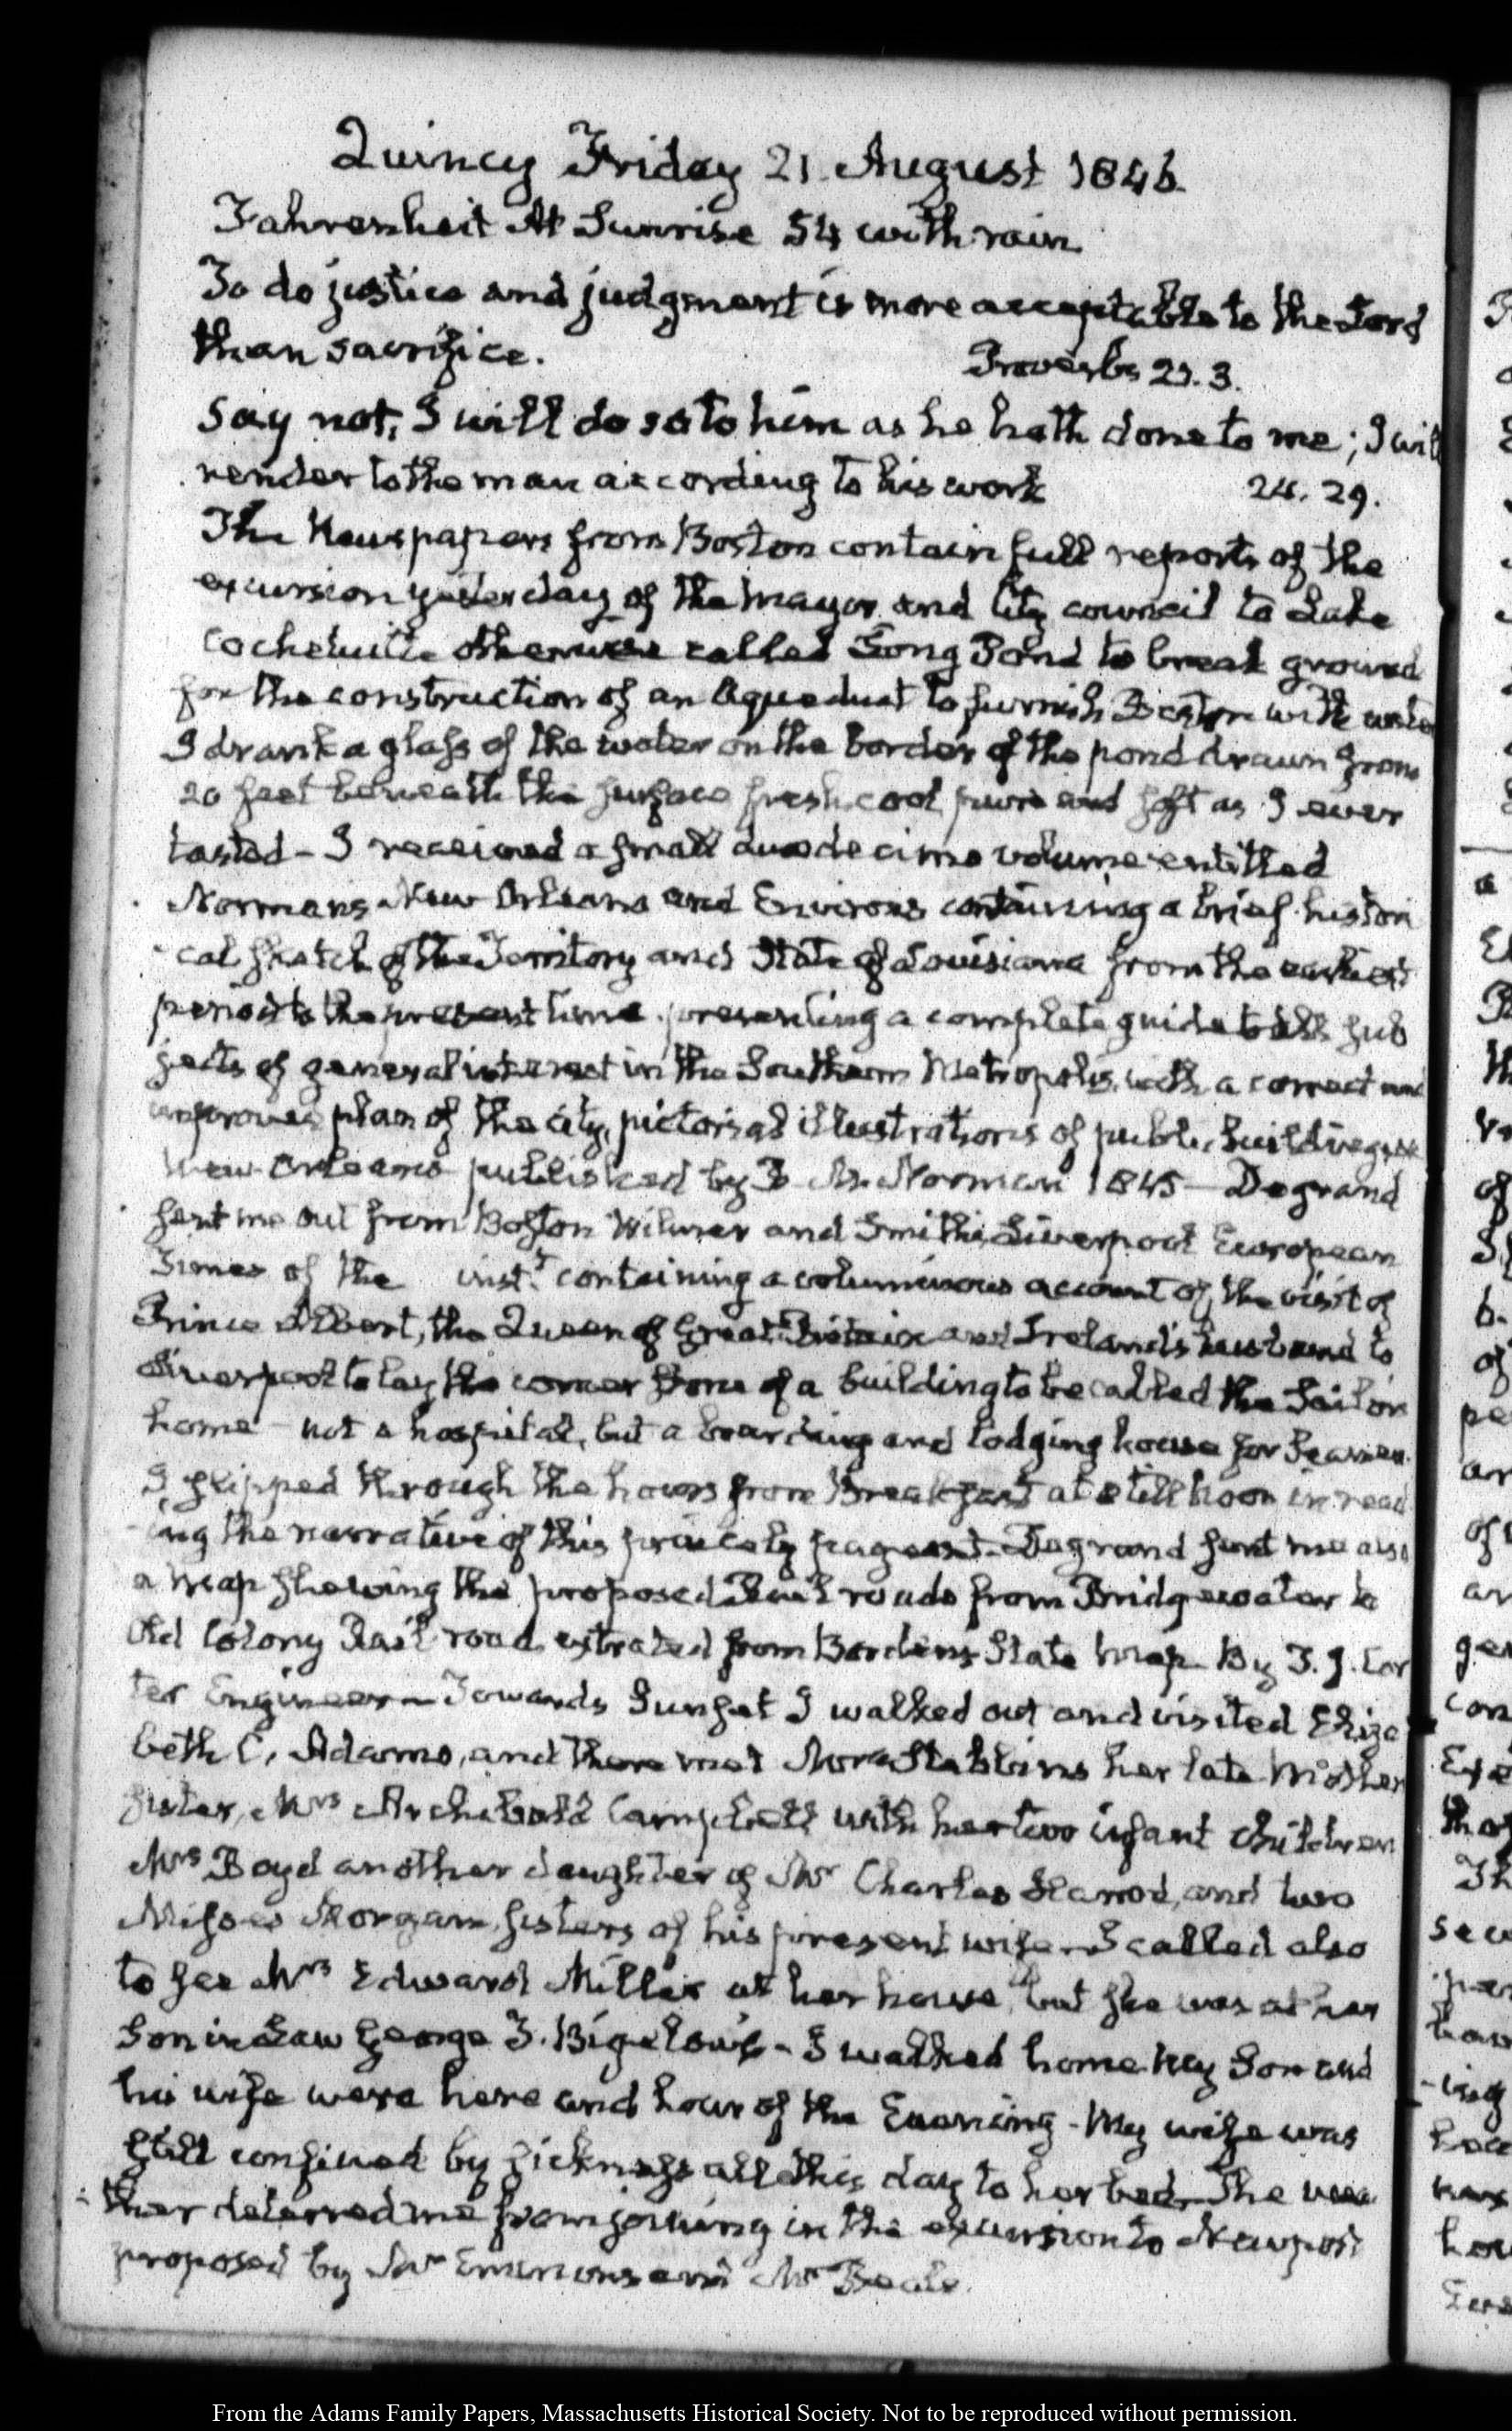 Quincy Friday 21. August 1846.
Fahrenheit At Sunrise 54 with rain
To do justice and judgment is more acceptable to the Lord
than sacrifice. Proverbs 21. 3.
Say not, I will do so to him as he hath done to me; I will
render to the man according to his work 24. 29.
The Newspapers from Boston contain full reports of the
excursion yesterday of the Mayor and City council to Lake
Cochetuitte otherwise called Long Pond to break ground
for the construction of an Aqueduct to furnish Boston with water
I drank a glass of the water on the border of the pond drawn from
20 feet beneath the surface fresh cool pure and soft as I ever
tasted – I received a small duodecimo volume entitled
Normans New Orleans and Environs containing a brief histori
cal sketch of the Territory and State of Louisiana from the earliest
period to the present time. presenting a complete guide to all sub
jects of general interest in the Southern Metropolis, with a correct and
improved plan of the city, pictorial illustrations of public buildings &c
New Orleans published by B. M. Norman 1845 – Degrand
sent me out from Boston Wilmer and Smith's Liverpool European
Times of the inst.t containing a voluminous account of the visit of
Prince Albert, the Queen of Great Britain and Ireland's husband to
Liverpool to lay the corner stone of a building to be called the Sailors
home – not a hospital, but a boarding and lodging house for Seamen.
I slipped through the hours from Breakfast at till noon in read
ing the narrative of this princely pageant – Degrand sent me also
a map shewing the proposed Rail roads from Bridgewater to
Old Colony Rail road extracted from Bordens State map By T. J. Car
ter Engineer – Towards Sunset I walked out and visited Eliza
beth C. Adams, and there met Mrs Stebbins her late Mother
sister, Mrs Archibald Campbell with her two infant children
Mrs Boyd another daughter of Mr Charles Harrod, and two
Misses Morgan, sisters of his present wife – I called also
to see Mrs Edward Miller at her house, but she was at her
Son in Law George T. Bigelow's – I walked home My Son and
his wife were here and hour of the Evening – My wife was
still confined by sickness all this day to her bed – The wea
ther deterred me from joining in the excursion to Newport
proposed by Mr Emmons and Mr Beale.
From the Adams Family Papers, Massachusetts Historical Society. Not to be reproduced without permission.